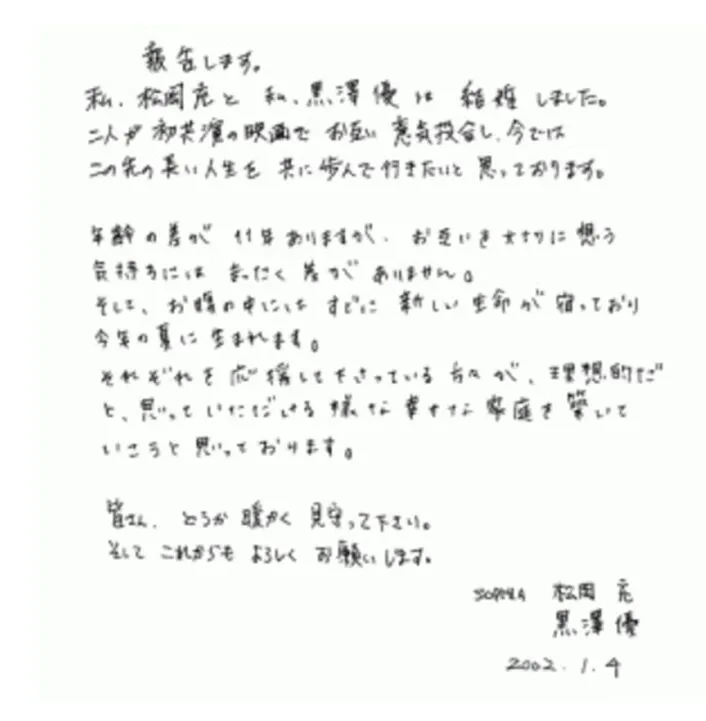 報告します。
私、松岡充と 私、黒澤優は 結婚しました。
二人が 初共演の映画で お互い 意気投合し、今では
この先の長い人生を 共に歩んで行きたいと 思っております。
年齢の差が 11年ありますが、お互いを大切に想う
気持ちには まったく差がありません。
そして、お腹の中には すでに 新しい生命が 宿っており
今年の夏に生まれます。
それぞれを応援して下さっている方々が、理想的だ
と、思っていただける様な幸せな家庭を築いて
いこうと思っております。
皆さん、どうか暖かく見守って下さい。
そしてこれからもよろしくお願いします。
SOPHIA 松岡 充
黒澤 優
2002.1.4